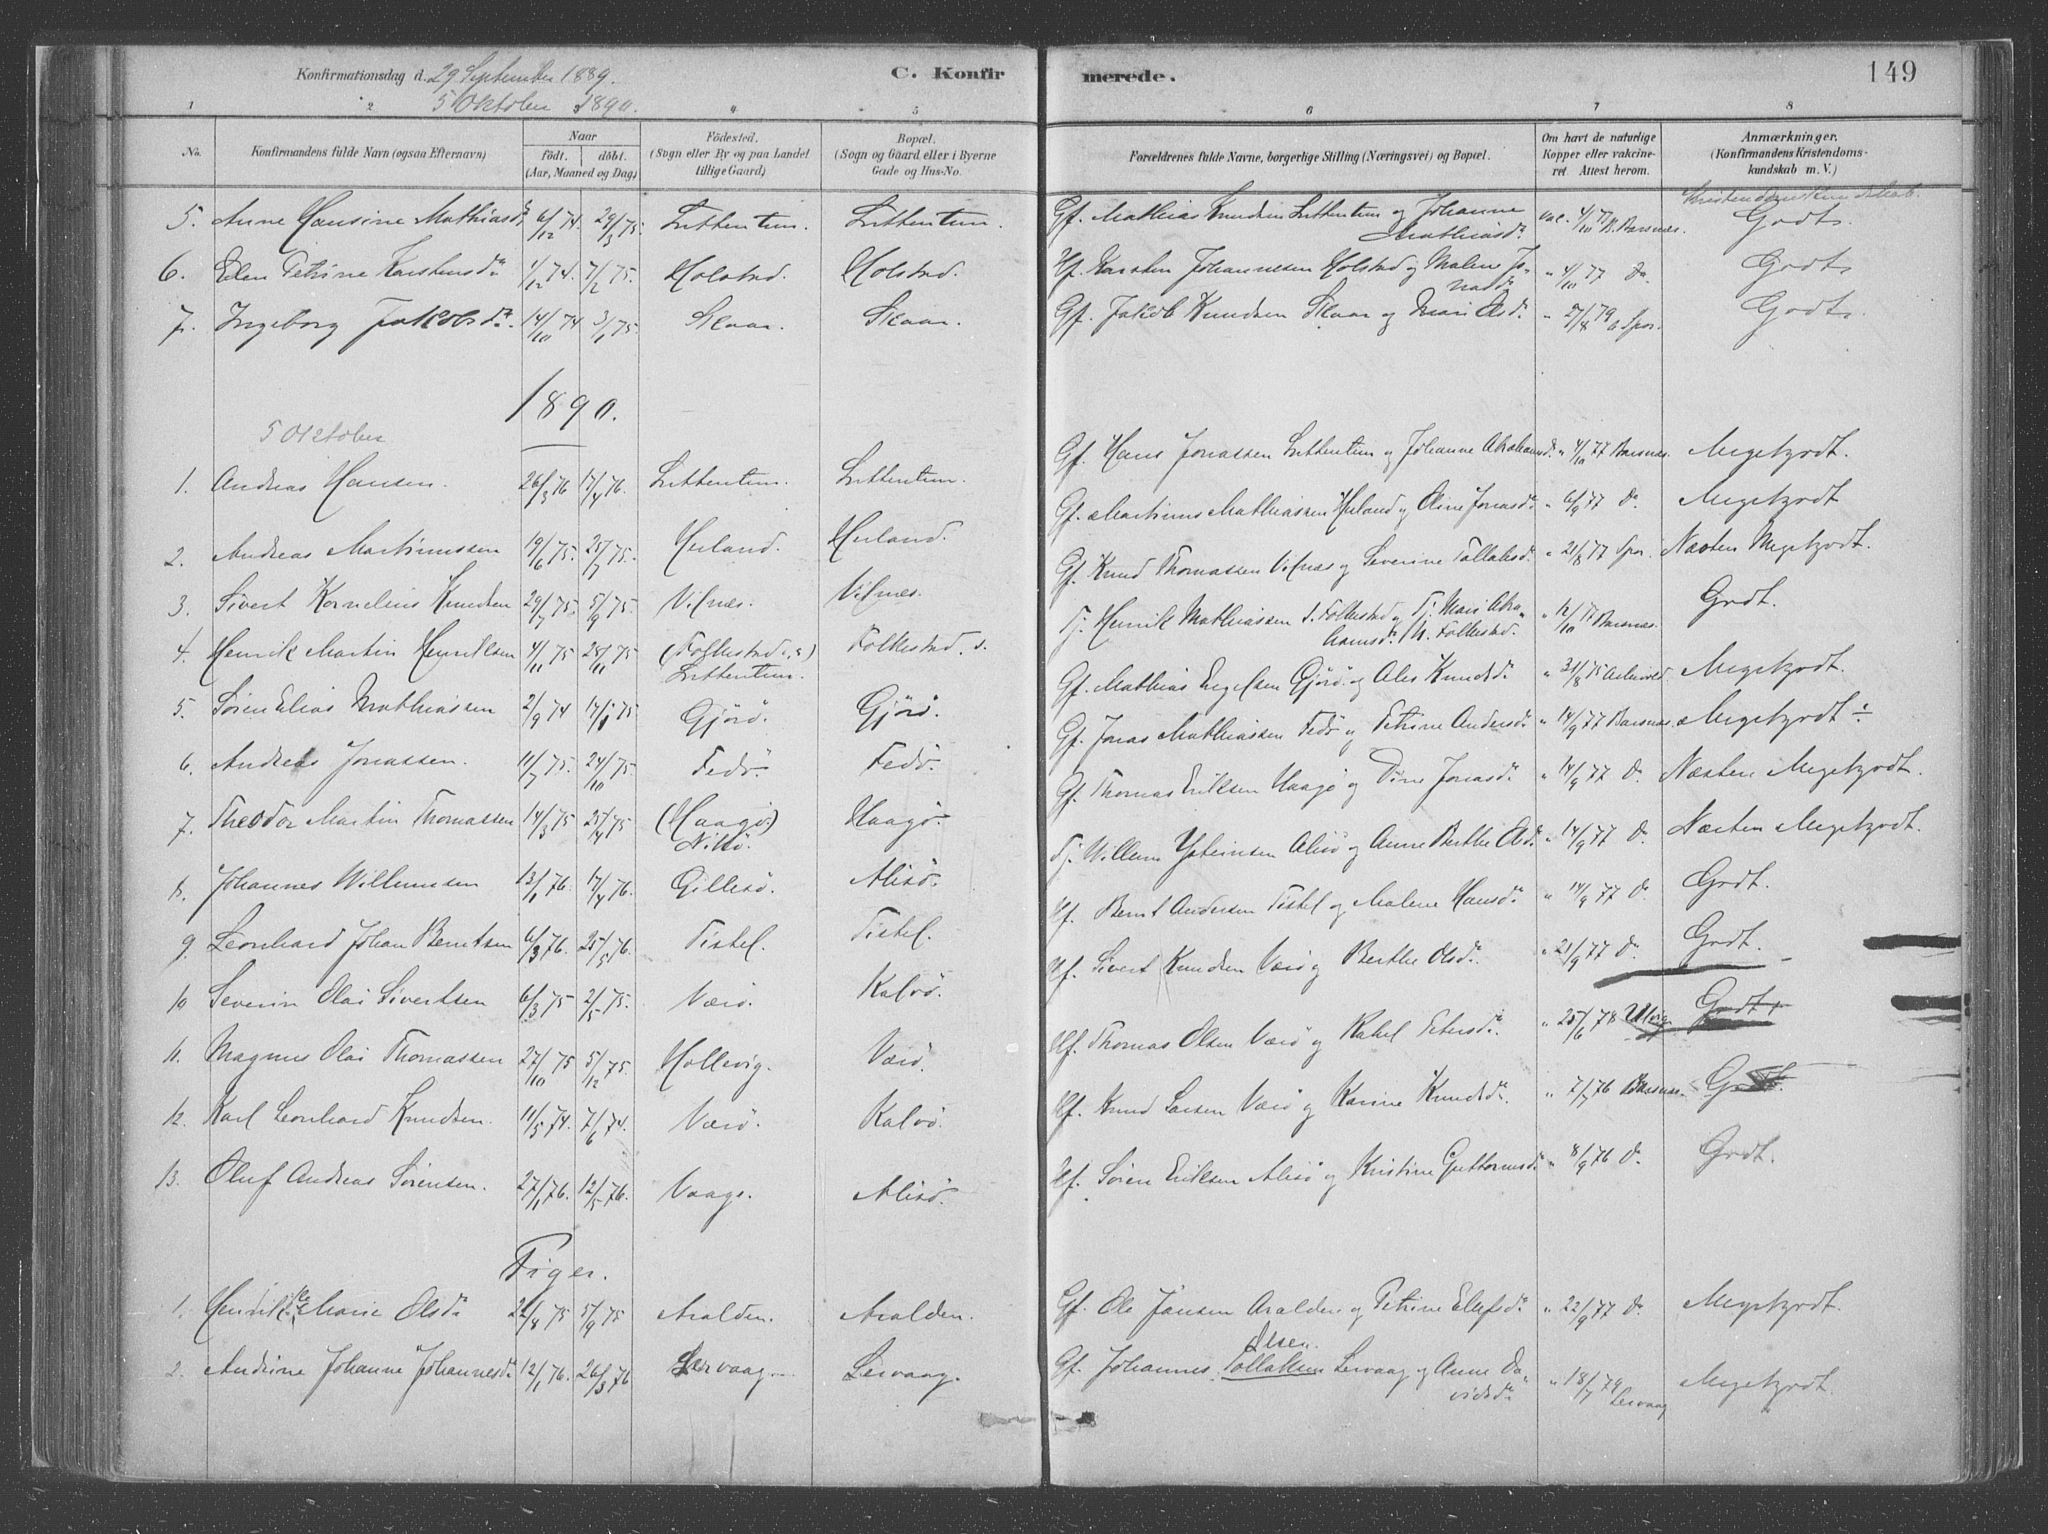 Konfirmationsdag d. 29 September 1889.
5 Oktober 1890.
C. Konfirmerede.
149
1 2 4 5 6 7 8
No.
Konfirmandens fulde Navn (ogsaa Efternavn)
Naar
født. døbt.
(Aar, Maaned og Dag)
Fødested.
(Sogn eller By og paa Landet
tillige Gaard)
Bopæl.
(Sogn og Gaard eller i Byerne
Gade og Hus-No.
Forældrenes fulde Navne, borgerlige Stilling (Næringsvei) og Bopæl.
Om havt de naturlige
Kopper eller vakcine-
ret. Attest herom.
Anmærkninger.
(Konfirmandens Kristendoms-
kundskab m. V.)
Kristendomskundskab.
5. Anne Hansine Mathiasdr 6/12 74. 29/3 75. Littentun. Littentun. Gf. Mathias Knudsen Littentun og Johanne Mathiasdr. vac. 4/10 77 B. Barsnæs. Godt.
6. Elen Petrine Karstensdr 1/12 74. 7/2 75. Holstad. Holstad. Hf. Karsten Johannesen Holstad og Malene Jo-
nasdr " 4/10 77 Do. Godt.
7. Ingeborg Jakobsdr. 14/10 74 3/1 75. Skaar. Skaar. Gf. Jakob Knudsen Skaar og Mari Olsdr " 27/8 79 Spor. Godt.
1890.
5 Oktober
1. Andreas Hansen. 26/3 76 17/4 76. Littentun. Littentun. Gf. Hans Jonassen Littentun og Johanne Abrahamsdr " 4/10 77 Barsnæs. Megetgodt.
2. Andreas Martinussen 19/6 75. 25/7 75. Herland. Herland. Gf. Martinus Mathiassen Herland og Oline Jonasdr " 6/9 77 Do Megetgodt
3. Sivert Kornelius Knudsen 29/7 75. 5/9 75. Vifnæs. Vifnæs. Gf. Knud Thomassen Vifnæs og Severine Tollaksdr " 21/8 77 Spor. Næsten Megetgodt.
4. Henrik Martin Henriksen 4/11 75 28/11 75 (Folkestad i. s) Littentun. Folkestad. s. Tj. Henrik Mathiassen I. Folkestad og Tj. Mari Abra-
hamsdr. N. Folkestad. " 12/10 77 Barsnæs. Godt.
5. Søren Elias Mathiassen 2/9 74 17/1 75 Gjörö. Gjörö. Gf. Mathias Engelsen Gjörö og Ales Knudsdr " 31/8 75 Megetgodt.
6. Andreas Jonassen. 11/7 75. 24/10 75 Fedö. Fedö. Gf. Jonas Mathiassen Fedö og Petrine Andersdr " 14/9 77 Barsnæs Megetgodt ÷
7. Theodor Martin Thomassen 14/3 75 25/4 75 (Haagö) Haagö. Gf. Thomas Eriksen Haagö og Dine Jonasdr " 14/9 77 Do Næsten Megetgodt.
8. Johannes Willumsen 13/1 76. 17/4 76. Gillesö. Alisö. Tj. Willum Alisö og Anne Berthe Olsdr " 14/9 77 Do. Næsten Megetgodt.
9. Leonhard Johan Berntsen 6/3 76. 25/5 76. Tistel. Tistel. Hf. Bernt Andersen Tistel og Malene Hansdr " 14/9 77 Do. Godt.
10 Severin Olai Sivertsen 6/3 75 2/5 75. Værö. Kalvö. Hf. Sivert Knudsen Værö og Berthe Olsdr " 21/9 77 Do Godt.
11. Magnus Olai Thomassen 27/10 75 5/12 75. Hollevig. Værö. Hf. Thomas Olsen Værö og Rakel Petersdr " 25/6 78 Godt.
12. Karl Leonhard Knudsen. 11/5 74. 7/6 74. Værö. Kalvö. Hf. Knud Larsen Værö og Karine Knudsdr " 7/7 76 Barsnæs. Godt.
13. Oluf Andreas Sörensen. 27/1 76. 12/5 76. Vaage. Alisö. Hf. Sören Eriksen Alisö og Kristine Guttormsdr " 8/9 76 Do. Godt.
Piger.
1. Henrikke Marie Olsdr 22/8 75 5/9 75 Aralden. Aralden. Gf. Ole Jansen Aralden og Petrine Elefsdr " 22/9 77 Do Megetgodt.
Olsen.
2. Andrine Johanne Johannesdr 12/1 76. 26/3 76 Lervaag. Lervaag. Gf. Johannes Tollaksen Lervaag og Anne Da-
vidsdr " 18/7 79 Lervaag Megetgodt.